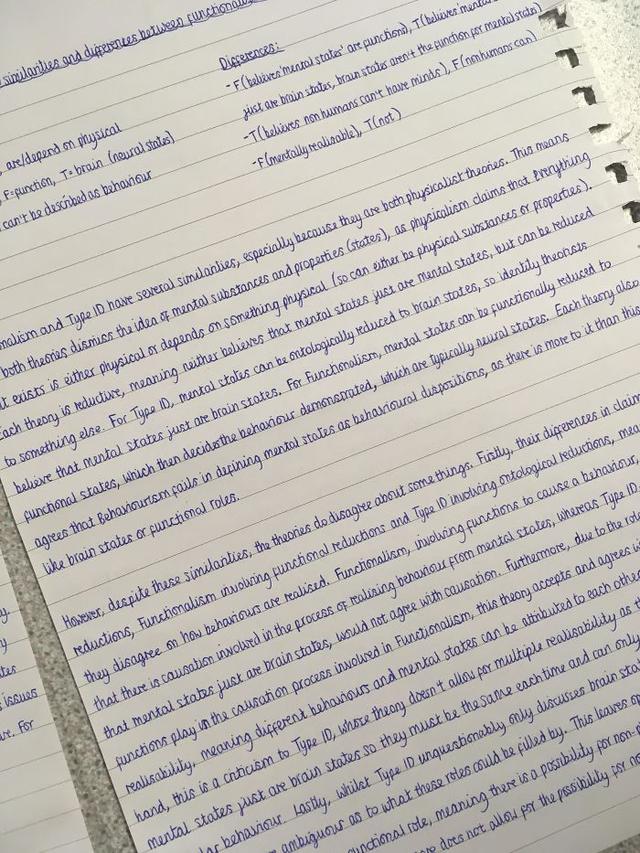 similarities and differences between functionalis
Differences:
-F(believes 'mental states' are functions), T(believes 'mental
just are brain states, brain states aren't the function for mental states)
-T(believes non humans can't have minds), F(nonhumans can)
-F(mentally realisable), T(not)
, are/depend on physical
, F=function, T=brain (neural states)
can't be described as behaviour
nalism and Type ID have several similarities, especially because they are both physicalist theories. This means
both theories dismiss the idea of mental substances and properties (states), as physicalism claims that everything
t exists is either physical or depends on something physical (so can either be physical substances or properties).
Each theory is reductive, meaning neither believes that mental states just are mental states, but can be reduced
to something else. For Type ID, mental states can be ontologically reduced to brain states, so identity theorists
believe that mental states just are brain states. For Functionalism, mental states can be functionally reduced to
functional states, which then decides the behaviour demonstrated, which are typically neural states. Each theory also
agrees that Behaviourism fails in defining mental states as behavioural dispositions, as there is more to it than this
like brain states or functional roles.
However, despite these similarities, the theories do disagree about some things. Firstly, their differences in claim
reductions, Functionalism involving functional reductions and Type ID involving ontological reductions, mea
they disagree on how behaviours are realised. Functionalism, involving functions to cause a behaviour,
that there is causation involved in the process of realising behaviour from mental states, whereas Type ID
that mental states just are brain states, would not agree with causation. Furthermore, due to the role
functions play in the causation process involved in Functionalism, this theory accepts and agrees wi
realisability, meaning different behaviours and mental states can be attributed to each othe
hand, this is a criticism to Type ID, whose theory doesn't allow for multiple realisability as th
mental states just are brain states so they must be the same each time and can only
lar behaviour. Lastly, whilst Type ID unquestionably only discusses brain sta
ambiguous as to what these roles could be filled by. This leaves o
unctional role, meaning there is a possibility for non-
does not allow for the possibility for no
issues
For